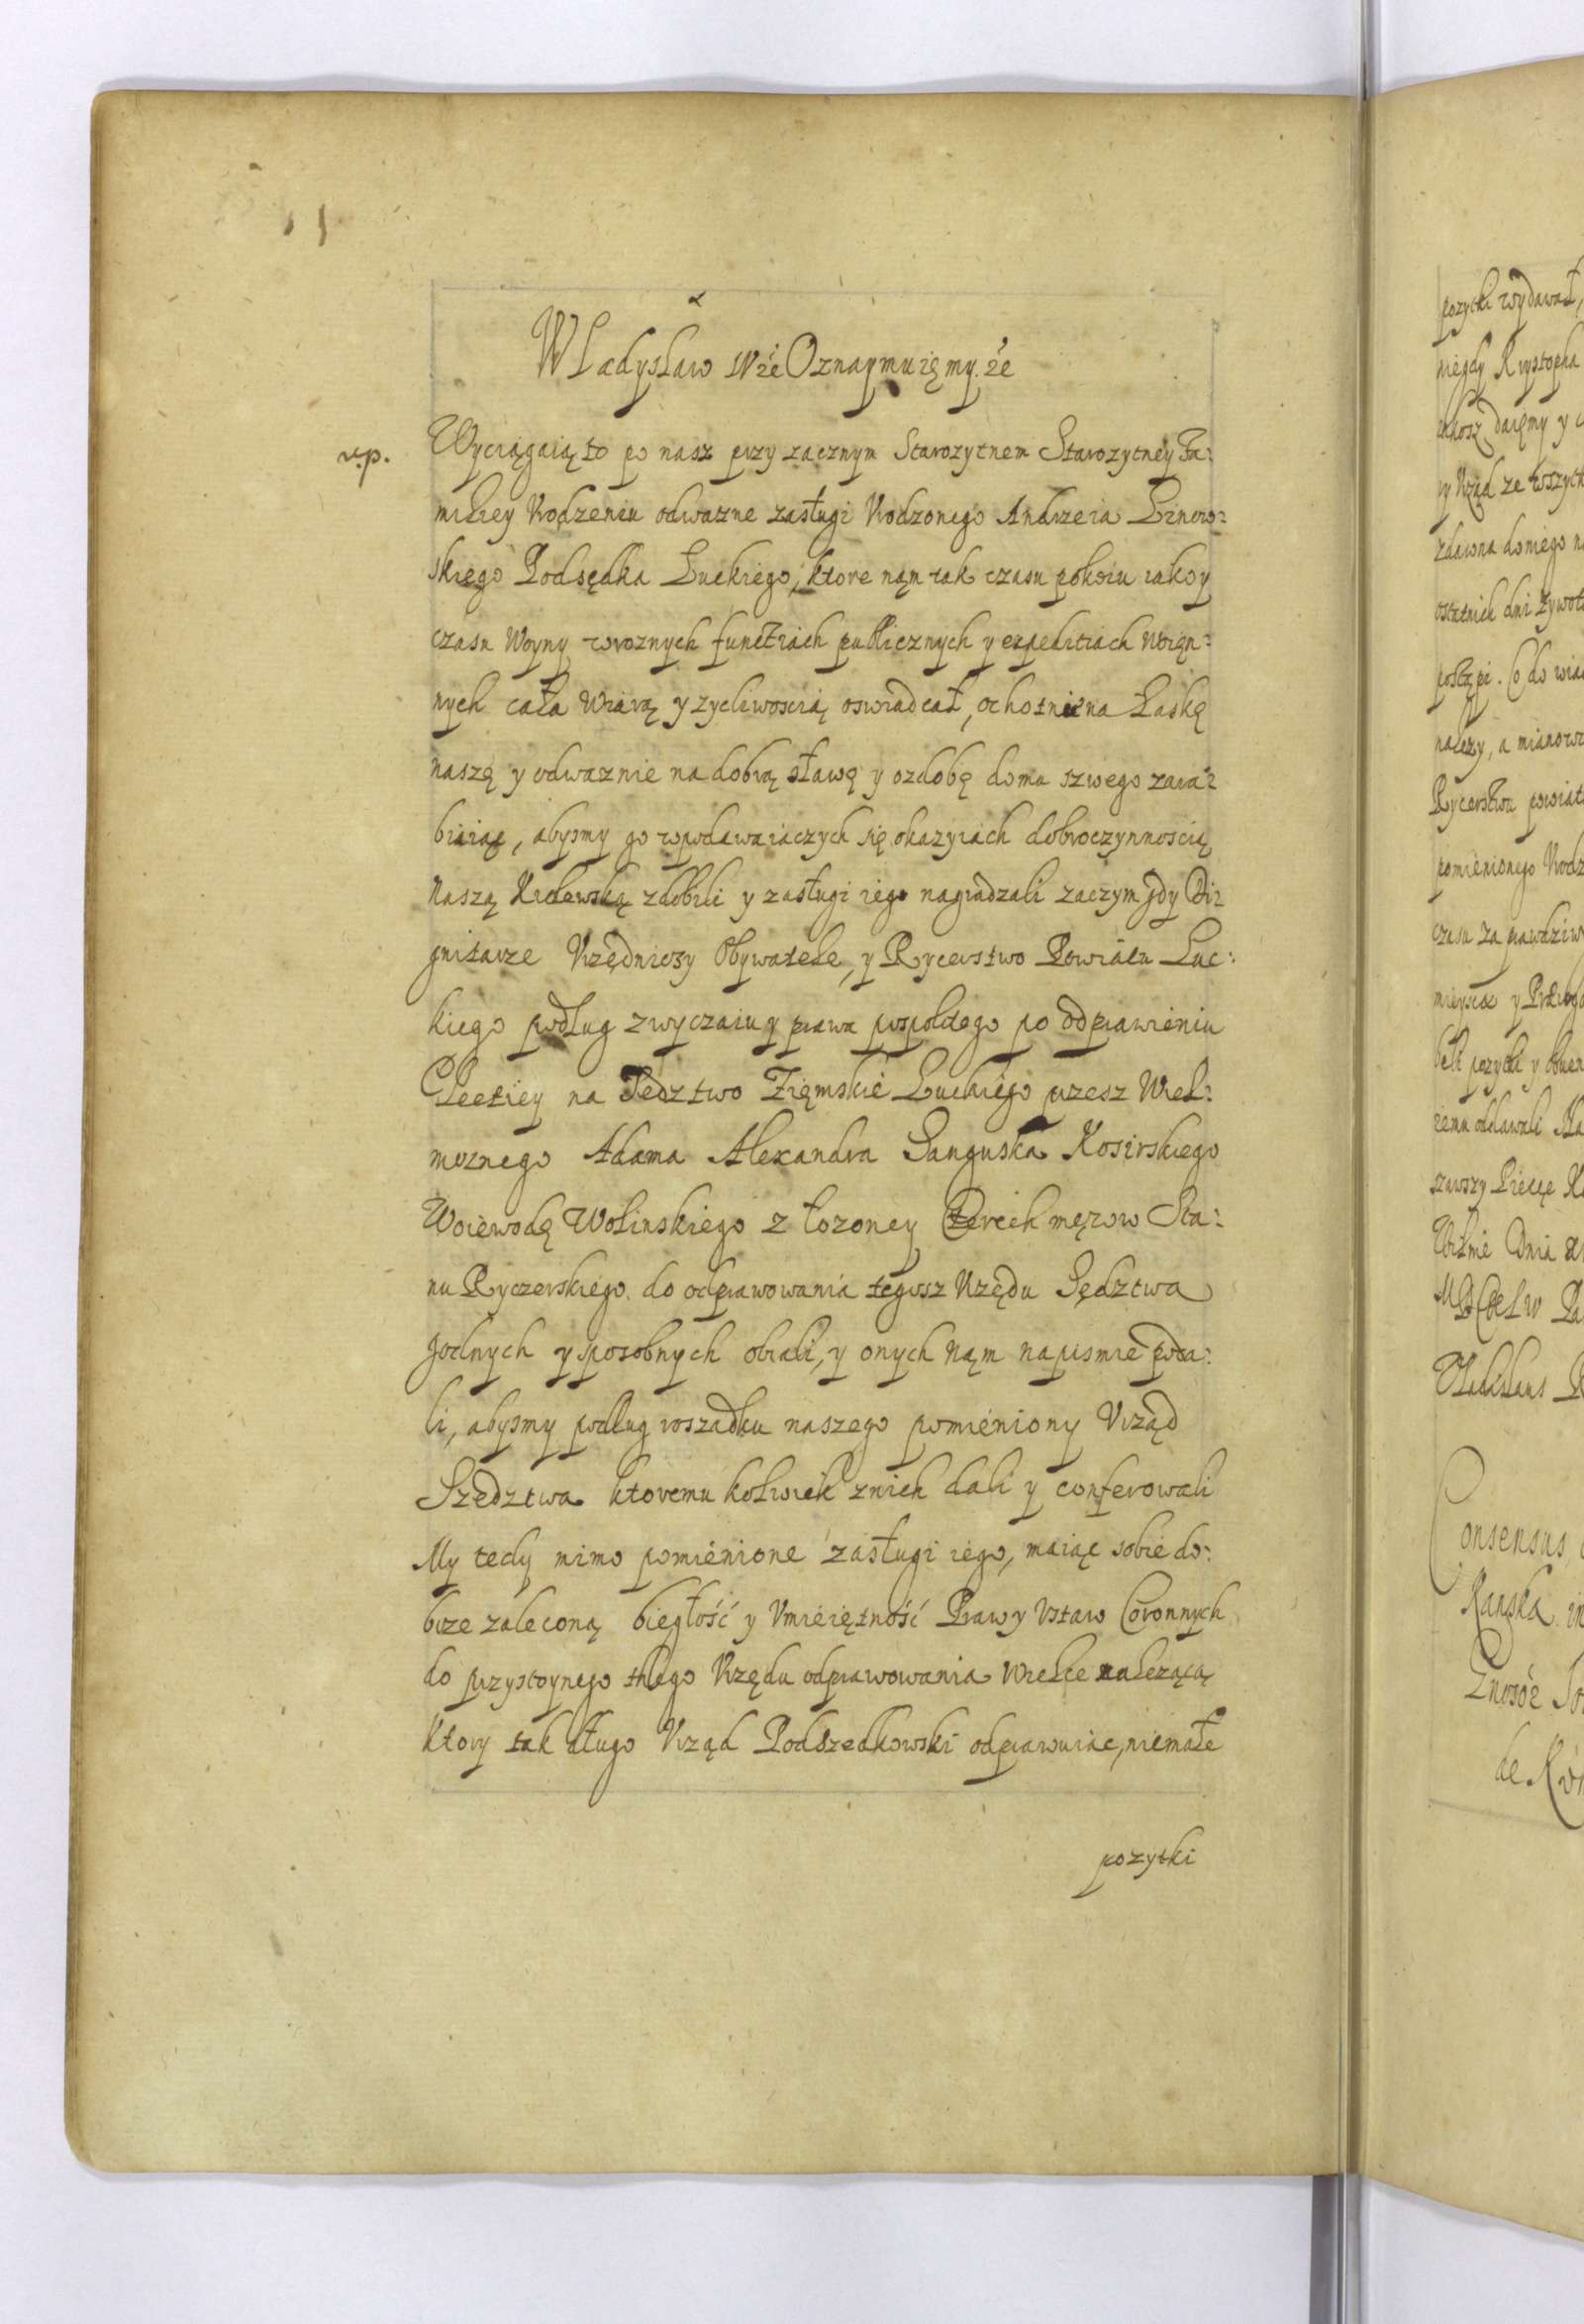 Władysław IV &c Oznaymuięmy. że
r.p.
Wyciągaią to po nasz przy zacznym Starozytnem Starozytney Fa:
miliey Vrodzeniu odwazne zasługi Vrodzonego Andrzeia Linew:
skięgo Podsędka Łuckiego, ktore nąm tak czasu pokoiu iako y
czasu Woyny w roznych functiach publicznych y expeditiach Woięn:
nych całą Wiarą y zycliwoscią oswiadcał, ochotnie na Łaskę
naszę y odwaznie na dobrą sławę y ozdobę domu szwego zara:
biaiąc, abysmy go w podawaiączych się okazyiach dobroczynnoscią
Naszą Krolewską zdobili y zasługi iego nagradzali zaczym gdy Di:
gnitarze Vrzędniczy Obywatele, y Rycerstwo Powiatu Łuc:
kiego podług zwyczaiu y prawa pospolitego po odprawieniu
Electiey na Sędztwo Zięmskie Łuckiego przesz Wiel:
moznego Adama Alexandra Sanguska Kosirskiego
Woiewodę Wolinskiego złozoney Czterech męzow Sta:
nu Ryczerskiego do odprawowania tegosz Vrzędu Sędztwa
godnych y sposobnych obrali, y onych Nąm na pismie poda:
li, abysmy podług roszadku naszego pomieniony Vrząd
Szędztwa ktoremu kolwiek z nich dali y conferowali
My tedy mimo pomienione zasługi iego, maiąc sobie do:
brze zaleconą biegłość y Vmieiętność Prawy Vstaw Coronnych
do przystoynego thego Vrzędu odprawowania Wielce należącą
Ktory tak długo Vrząd Podszedkowski odprawuiac, niemałe
pozytki
pozytki wydawał,
ostatnich dni zywota
należy, a mianowi
Rycerstwu powiatu
pomienionego Vrodz
Consensus